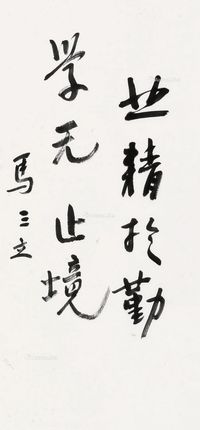 业精於勤
学无止境
马三立